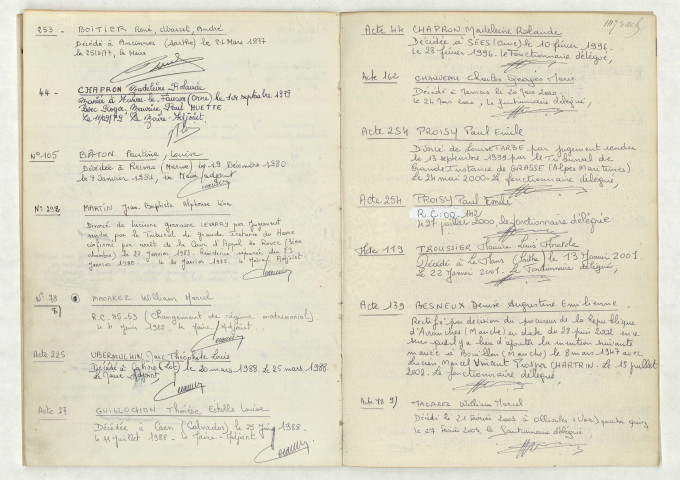 253 - BOITIER René, Marcel, André
Décédé à Ancinnes (Sarthe) le 21 Mars 1977
le Maire
44 - CHAPRON Madeleine Rolande
Mariée à (Orne) le 1er septembre 1979
avec Roger, Maurice, Paul HUETTE
Le Maire-Adjoint
N° 105 BATON Pauline, Louise
Décédée à Reims (Marne) le 19 Décembre 1980
le 9 Janvier 1981, le Maire adjoint
N° 298 MARTIN Jean Baptiste Alphonse Léon
Divorcé de Lucienne LEVARRY par Jugement
rendu par le Tribunal de Grande Instance du Havre
confirmé par arrêt de la Cour d'Appel de Rouen (3ème
chambre) le 22 Janvier 1983. Résidence séparée du 23
Janvier 1980. le Maire Adjoint
N° 78 MACAREZ William Marcel
8) R.C. 85-53 (Changement de régime matrimonial).
le 6 Juin 1985. le Maire Adjoint
Acte 225 UBERMULHIN Jacc Théophile Louis
Décédé à Cahors (Lot) le 20 mars 1988. le 25 mars 1988.
le Maire Adjoint
Acte 27 GUILLOCHON Thérèse Estelle Louise
Décédée à Caen (Calvados) le 25 juin 1988.
le 11 juillet 1988 - le Maire-Adjoint
Acte 44 CHAPRON Madeleine Rolande
Décédée à SÉES (Orne) le 10 février 1996.
le 28 février 1996. le fonctionnaire délégué,
Acte 162 CHAUVEAU Charles Georges Marie
Décédé à Mamers le 20 Mars 2000,
le 24 Mars 2000, le fonctionnaire délégué,
Acte 254 PROISY Paul Emile
Divorcé de Louise TARBE par jugement rendu
le 13 septembre 1939 par le Tribunal de
Grande Instance de GRASSE (Alpes Maritimes)
le 24 mai 2000. le fonctionnaire délégué,
Acte 254 PROISY Paul Emile
R.C: 00 - 142
le 27 juillet 2000, le fonctionnaire délégué
Acte 119 TROUSSIER Maurice Louis Anatole
Décédé à Le Mans (Sarthe) le 13 Janvier 2001.
le 22 Janvier 2001. le fonctionnaire délégué,
Acte 139 BESNEUX Denise Augustine Emilienne
Rectifié par décision du procureur de la République
d'Avranches (Manche) en date du 28 juin 2002 en ce
sens qu'il y a lieu d'ajouter la mention suivante
mariée à Bouillon (Manche) le 8 mars 1947 avec
Lucien Marcel Vincent Prosper CHARTRIN. le 15 juillet
2002. Le fonctionnaire délégué
Acte 78 9) MACAREZ William Marcel
Décédé le 21 février 2003 à Ollioules (Var)
le 27 2003, le fonctionnaire délégué